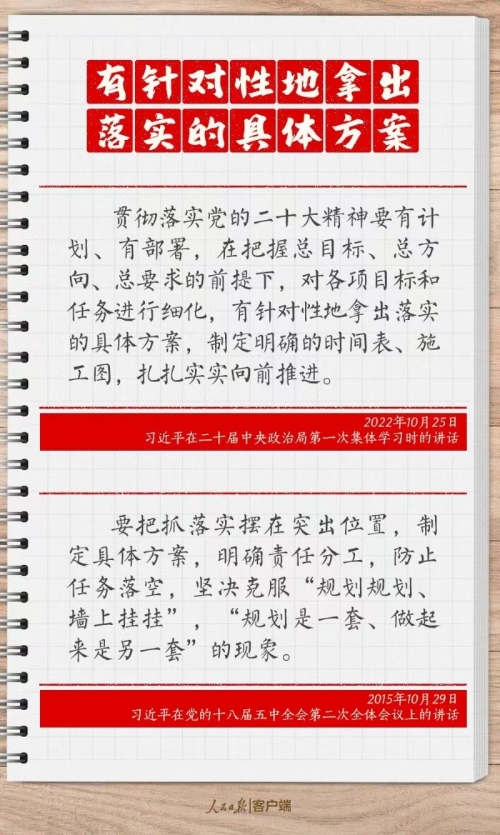 有针对性地拿出
落实的具体方案
贯彻落实党的二十大精神要有计
划、有部署，在把握总目标、总方
向、总要求的前提下，对各项目标和
任务进行细化，有针对性地拿出落实
的具体方案，制定明确的时间表、施
工图，扎扎实实向前推进。
2022年10月25日
习近平在二十届中央政治局第一次集体学习时的讲话
要把抓落实摆在突出位置，制
定具体方案，明确责任分工，防止
任务落空，坚决克服“规划规划、
墙上挂挂”，“规划是一套、做起
来是另一套”的现象。
2015年10月29日
习近平在党的十八届五中全会第二次全体会议上的讲话
人民日报|客户端